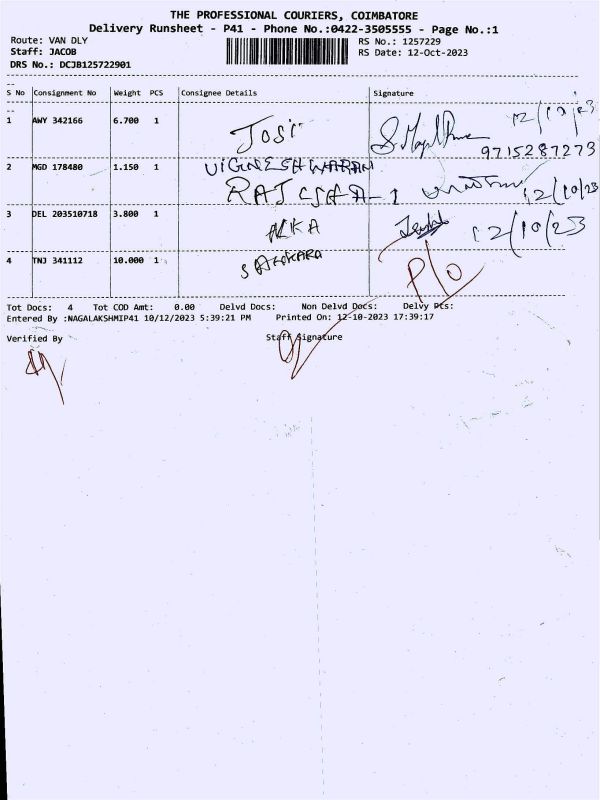 THE PROFESSIONAL COURIERS, COIMBATORE
Delivery Runsheet - P41 - Phone No.:0422-3505555 - Page No.:1
Route: VAN DLY RS No.: 1257229
Staff: JACOB RS Date: 12-Oct-2023
DRS No.: DCJB125722901
S No Consignment No Weight PCS Consignee Details Signature
1 AWY 342166 6.700 1 12/10/23
9715287273
2 MGD 178480 1.150 1 VIGNESHWARAN
12/10/23
3 DEL 203510718 3.800 1 12/10/23
4 TNJ 341112 10.000 1 P/O
Tot Docs: 4 Tot COD Amt: 0.00 Delvd Docs: Non Delvd Docs: Delvy Pcs:
Entered By :NAGALAKSHMIP41 10/12/2023 5:39:21 PM Printed On: 12-10-2023 17:39:17
Verified By Staff Signature